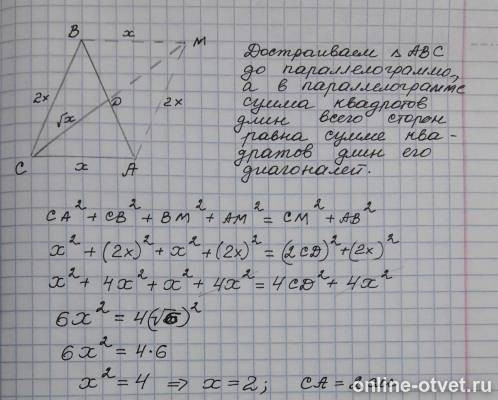 B x M
2x √x D 2x
C x A
Достраиваем ▵ ABC
до параллелограмма,
а в параллелограмме
сумма квадратов
длин всего сторон
равна сумме ква-
дратов длин его
диагоналей.
CA² + CB² + BM² + AM² = CM² + AB²
x² + (2x)² + x² + (2x)² = (2CD)² + (2x)²
x² + 4x² + x² + 4x² = 4CD² + 4x²
6x² = 4(√6)²
6x² = 4·6
x² = 4 ⇒ x = 2; CA =
online-otvet.ru